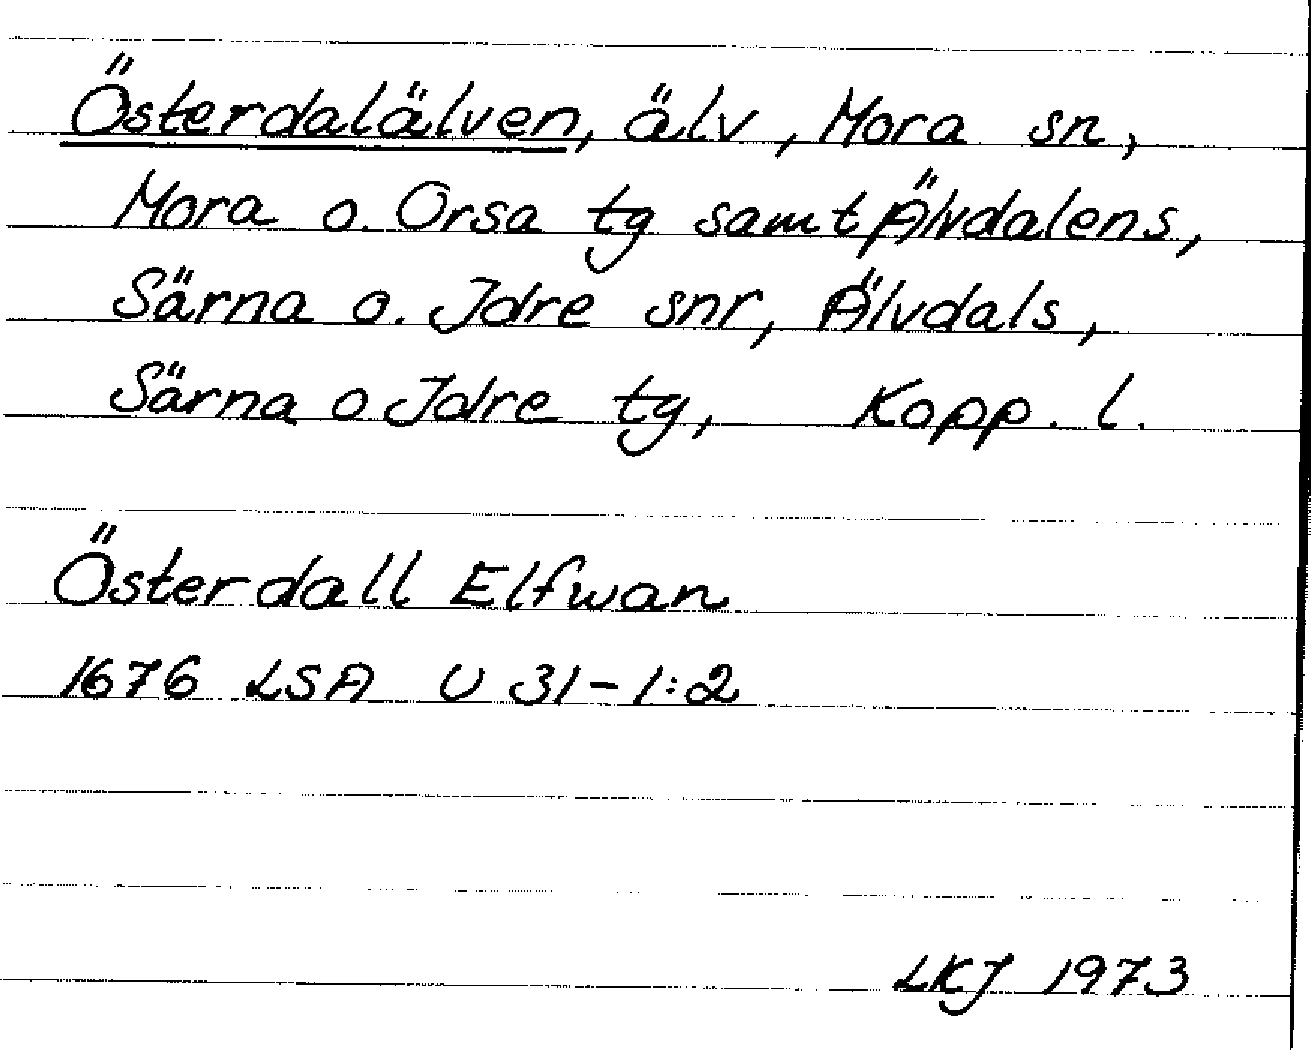 Österdalälven, älv, Mora sn,
Mora o. Orsa tg samt Älvdalens,
Särna o. Idre snr, Älvdals,
Särna o Idre tg, Kopp. l.
Österdall Elfwan
1676 LSA U 31-1:2
LKJ 1973